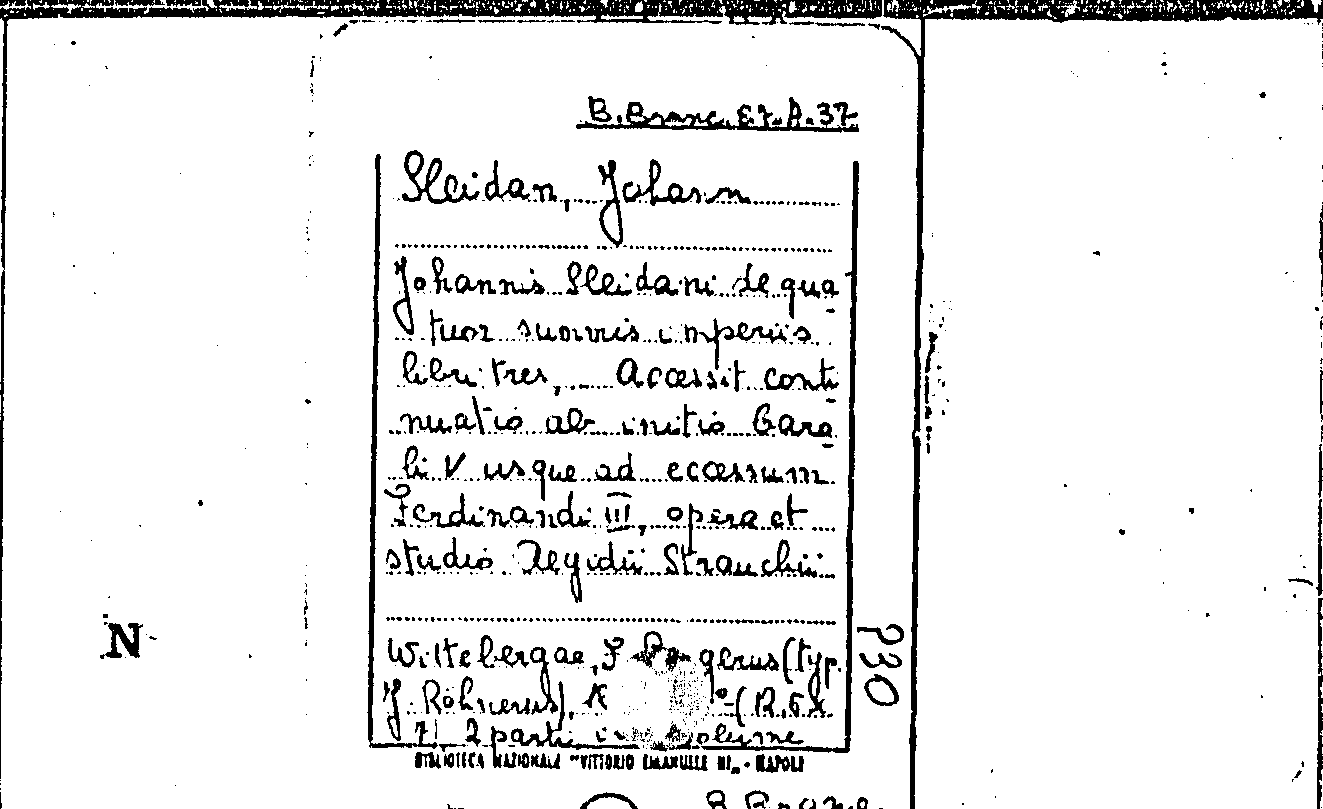 B. Branc. 87. A. 37
Sleidan, Johann
Johannis Sleidani de qua
tuor summis imperiis
libri tres, Accessit conti
nuatio ab initio Caro
li V usque ad eccessum
Ferdinandi III, opera et
studio Aegidii Strauchii
N
Wittebergae, J (typ.
J. Röhnerus),
7) 2 parti
930
BIBLIOTECA NAZIONALE "VITTORIO EMANUELE III" - NAPOLI
B. Branc.